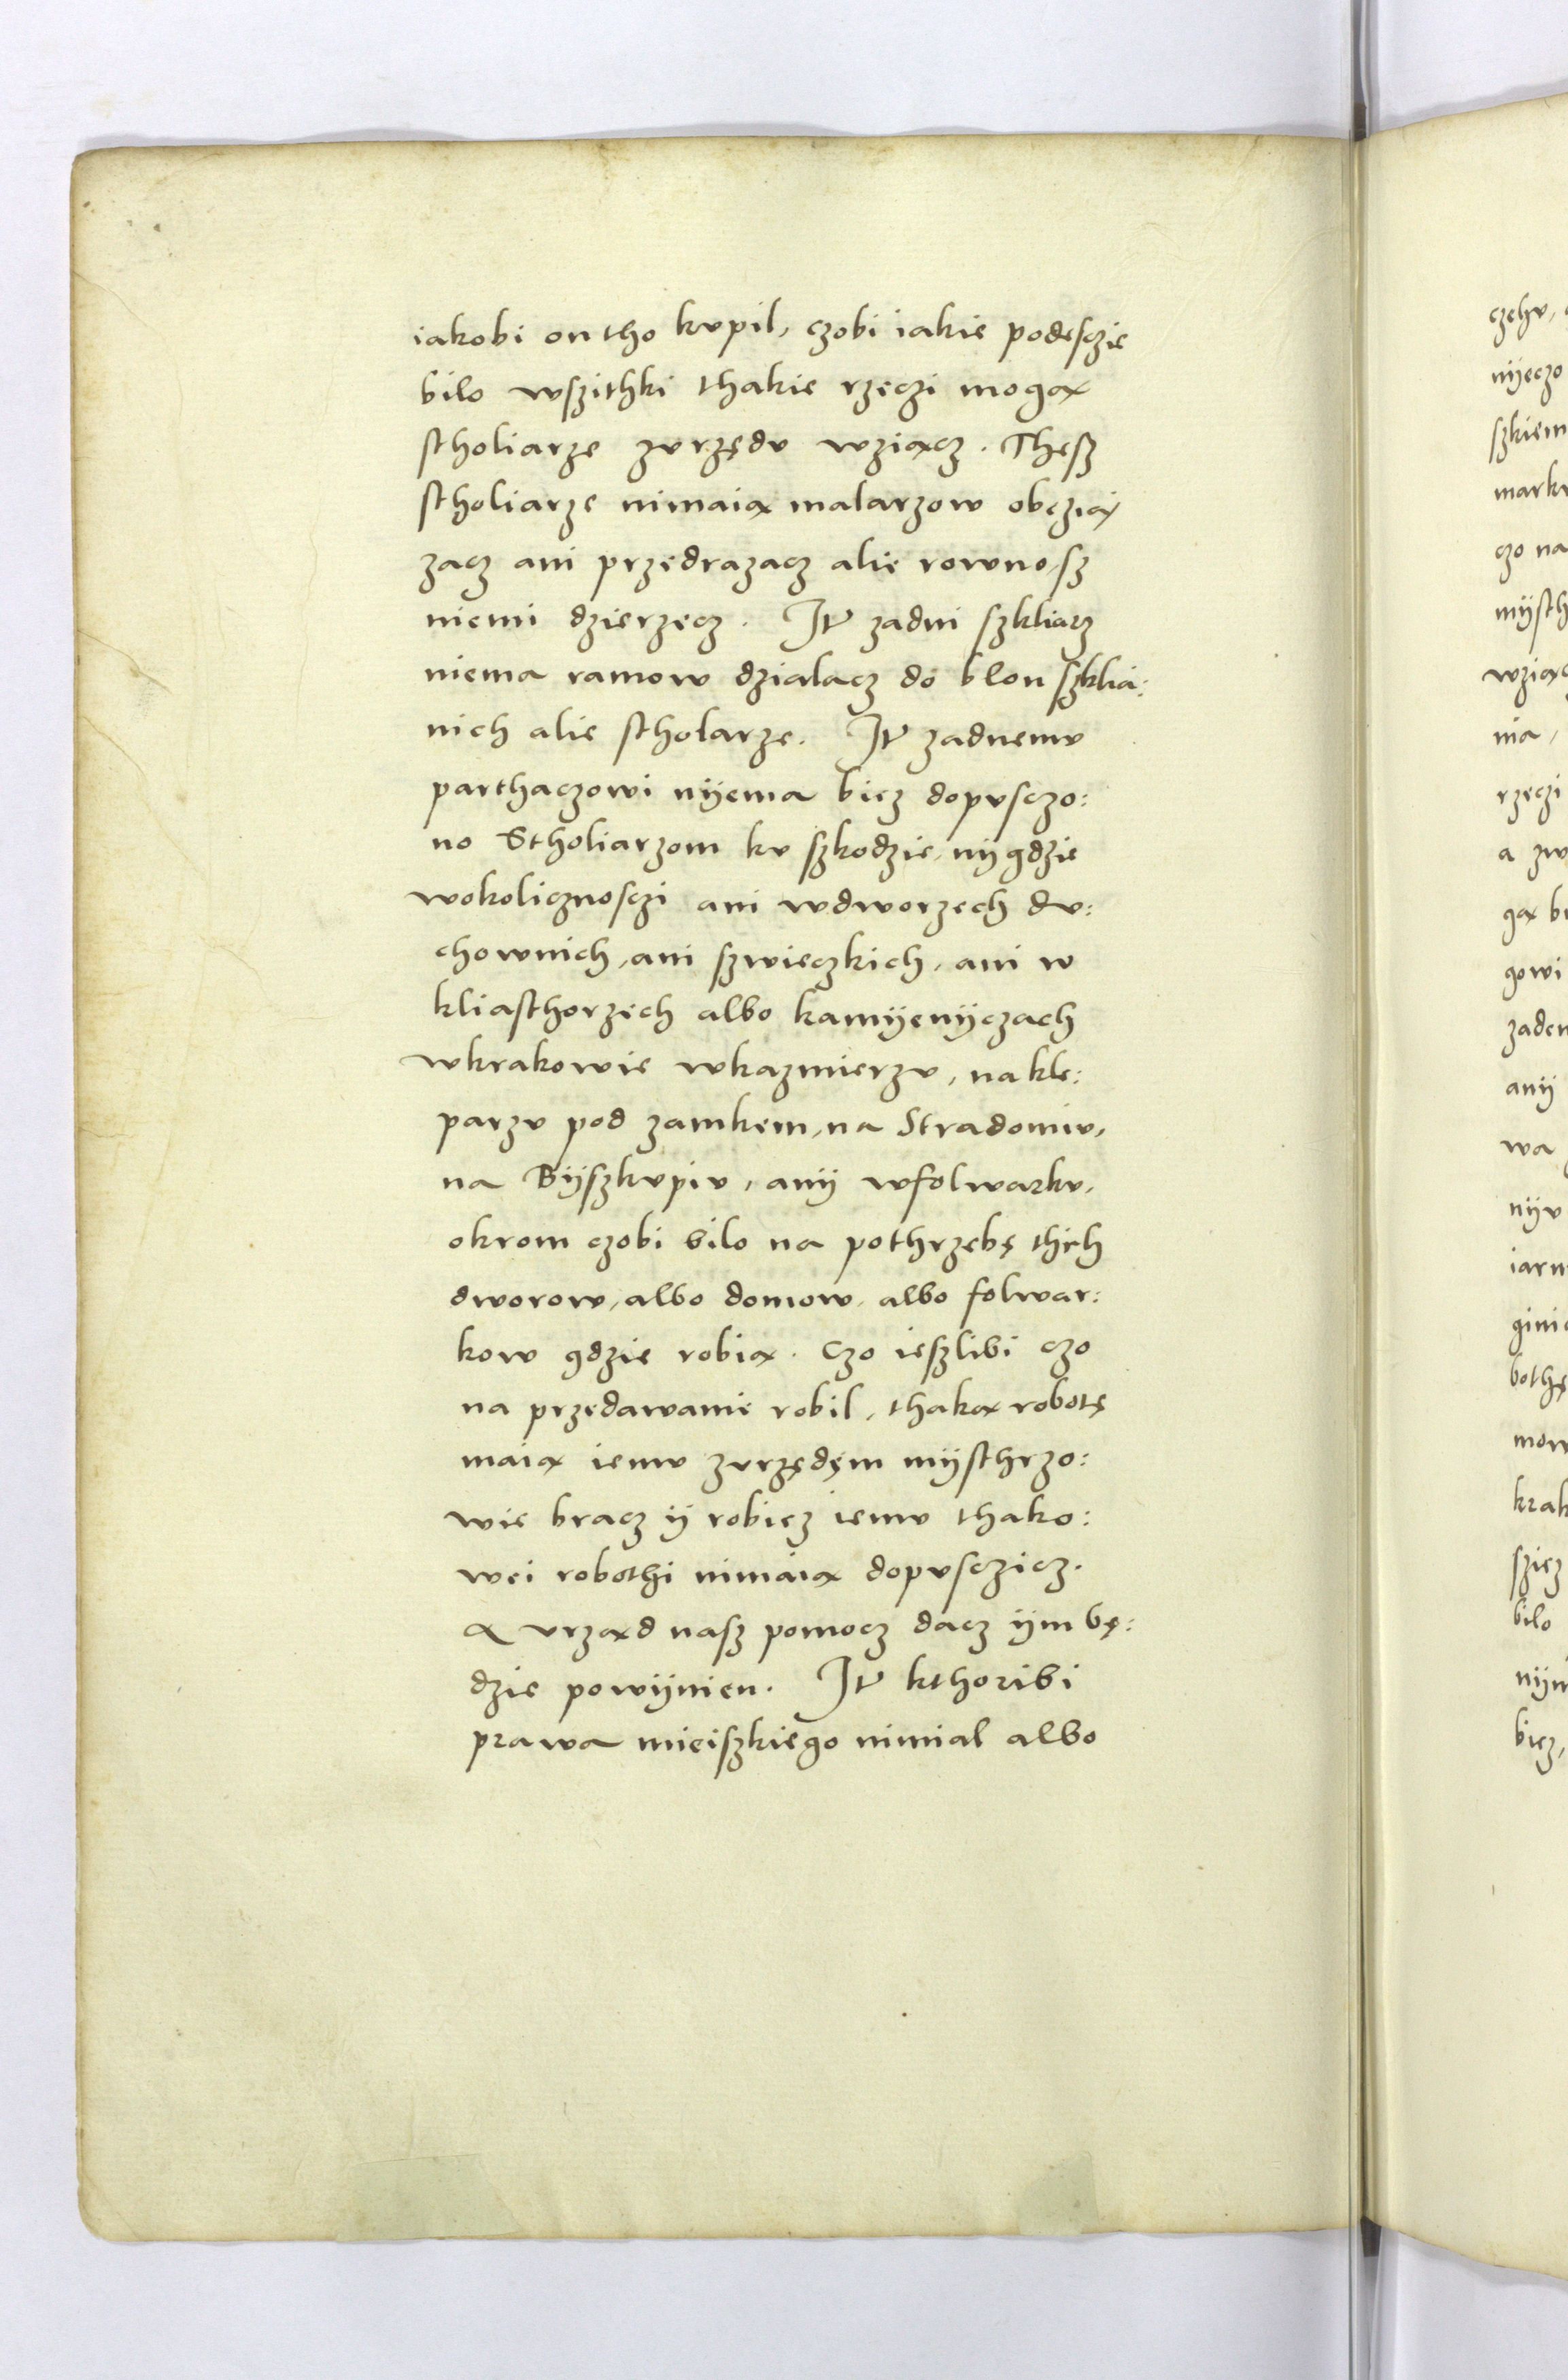 iakobi on tho kvpil, czobi iakie podesczie
bilo wszithki thakie rzeczi mogą
stholiarze zvrzędv wziącz. Thesz
stholiarze nimaią malarzow obczią
zacz ani przedrazacz alie rowno sz
niemi dzierzecz. It zadni szkliarz
niema ramow dzialacz do blon szklia:
nich alie stholarze. It zadnemv
parthaczowi nyema bicz dopvsczo:
no Stholiarzom kv szkodzie, nygdzie
wokolicznosczi ani wdworzech dv:
chownich, ani szwieczkich, ani w
kliasthorzech albo kamyenyczach
wkrakowie wkazmierzv, na kle:
parzv pod zamkem, na Stradomiv,
na Byszkvpiv, any wfolwarkv,
okrom czobi bilo na pothrzebę thich
dworow, albo domow, albo folwar:
kow gdzie robią. Czo ieszlibi czo
na przedawanie robil, thaką robotę
maią iemv zvrzędęm mysthrzo:
wie bracz y robicz iemv thako:
wei robothi nimaią dopvsczicz.
A vrząd nasz pomocz dacz ym bę:
dzie powynien. It kthoribi
prawa mieiszkiego nimial albo
czehv,
nyeczo
szkiem
czo na
wziąc
nia,
rzeczi
a zw
gą b
gowi
zaden
any
wa
nyv
bothę
mow
krak
szicz
bilo
bicz,